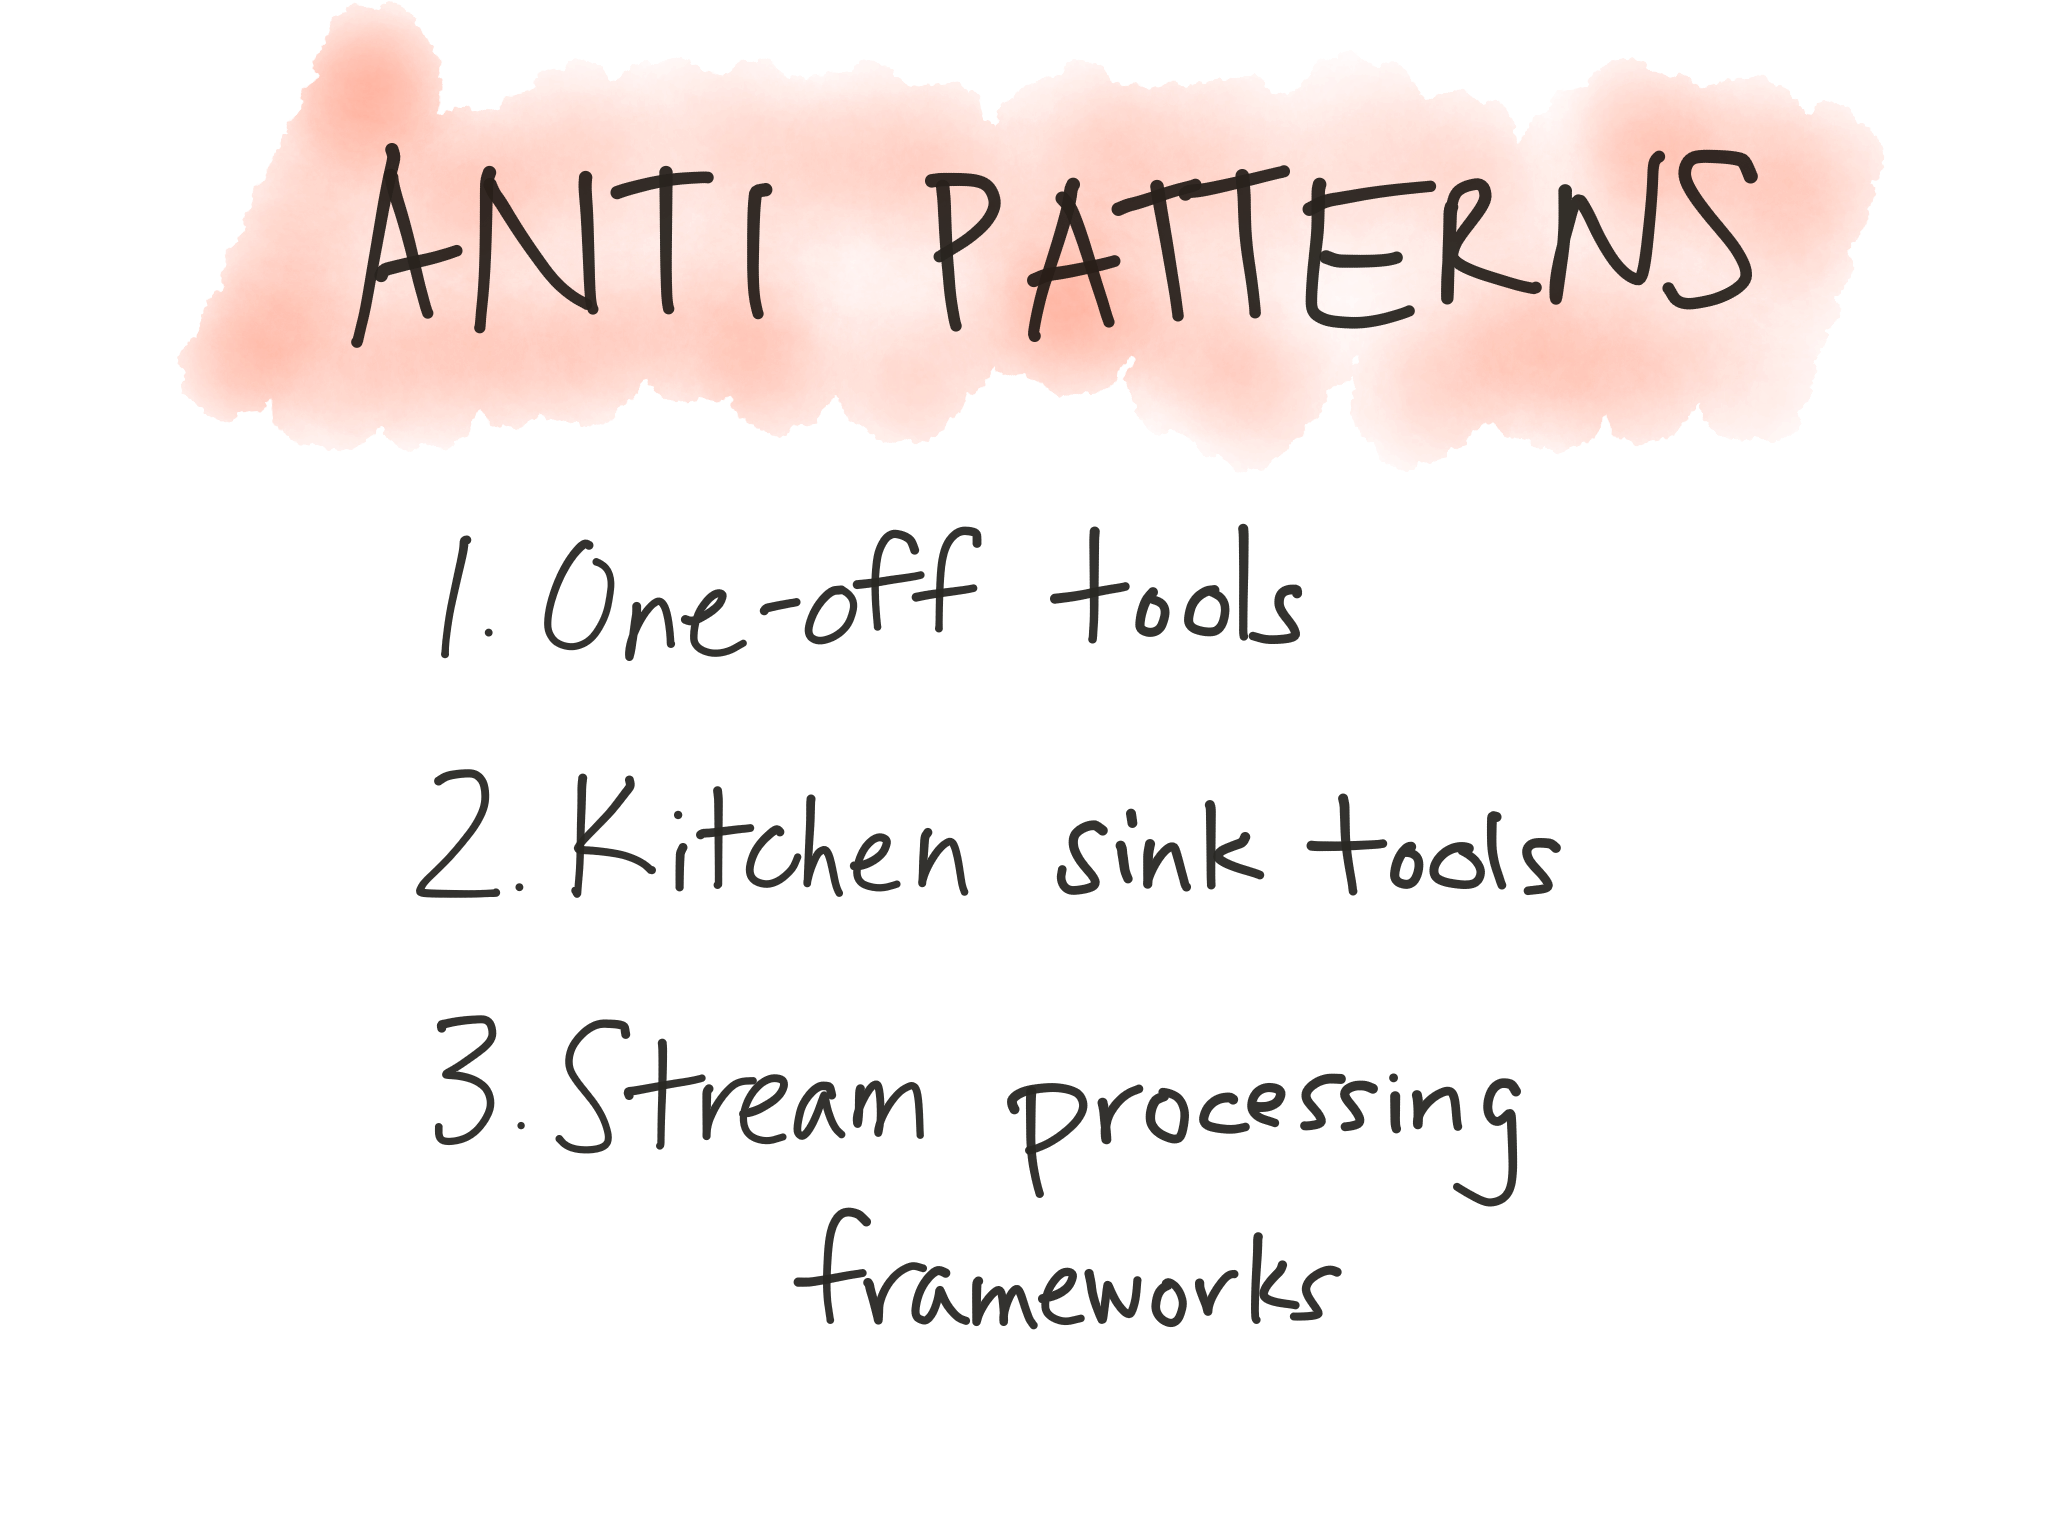 ANTI PATTERNS
1. One-off tools
2. Kitchen sink tools
3. Stream processing
frameworks